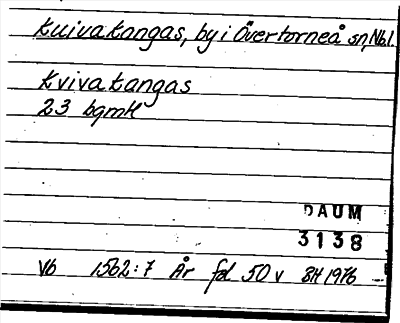 Kuivakangas, by i Övertorneå sn, Nb.l.
Kvivakangas
23 bgmk
DAUM
3138
Vb 1562:7 År fol 50 v BH 1976